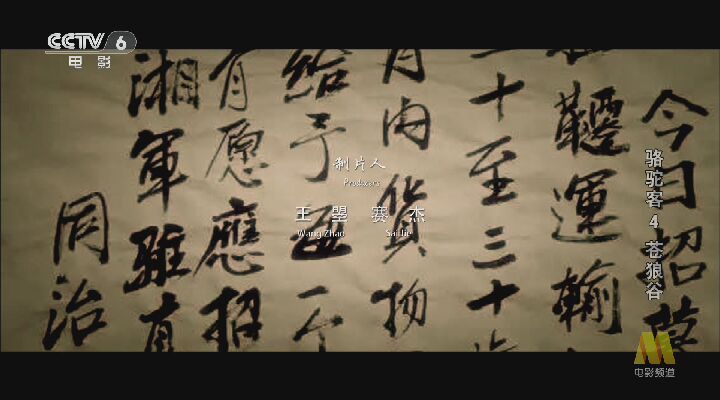 CCTV 6
电影
今日招募
運輸
二十至三十
月内貨物
給予
有愿應招
湘軍雖
同治
制片人
Producers
王曌 赛杰
Wang Zhao Sai Jie
骆驼客4苍狼谷
电影频道